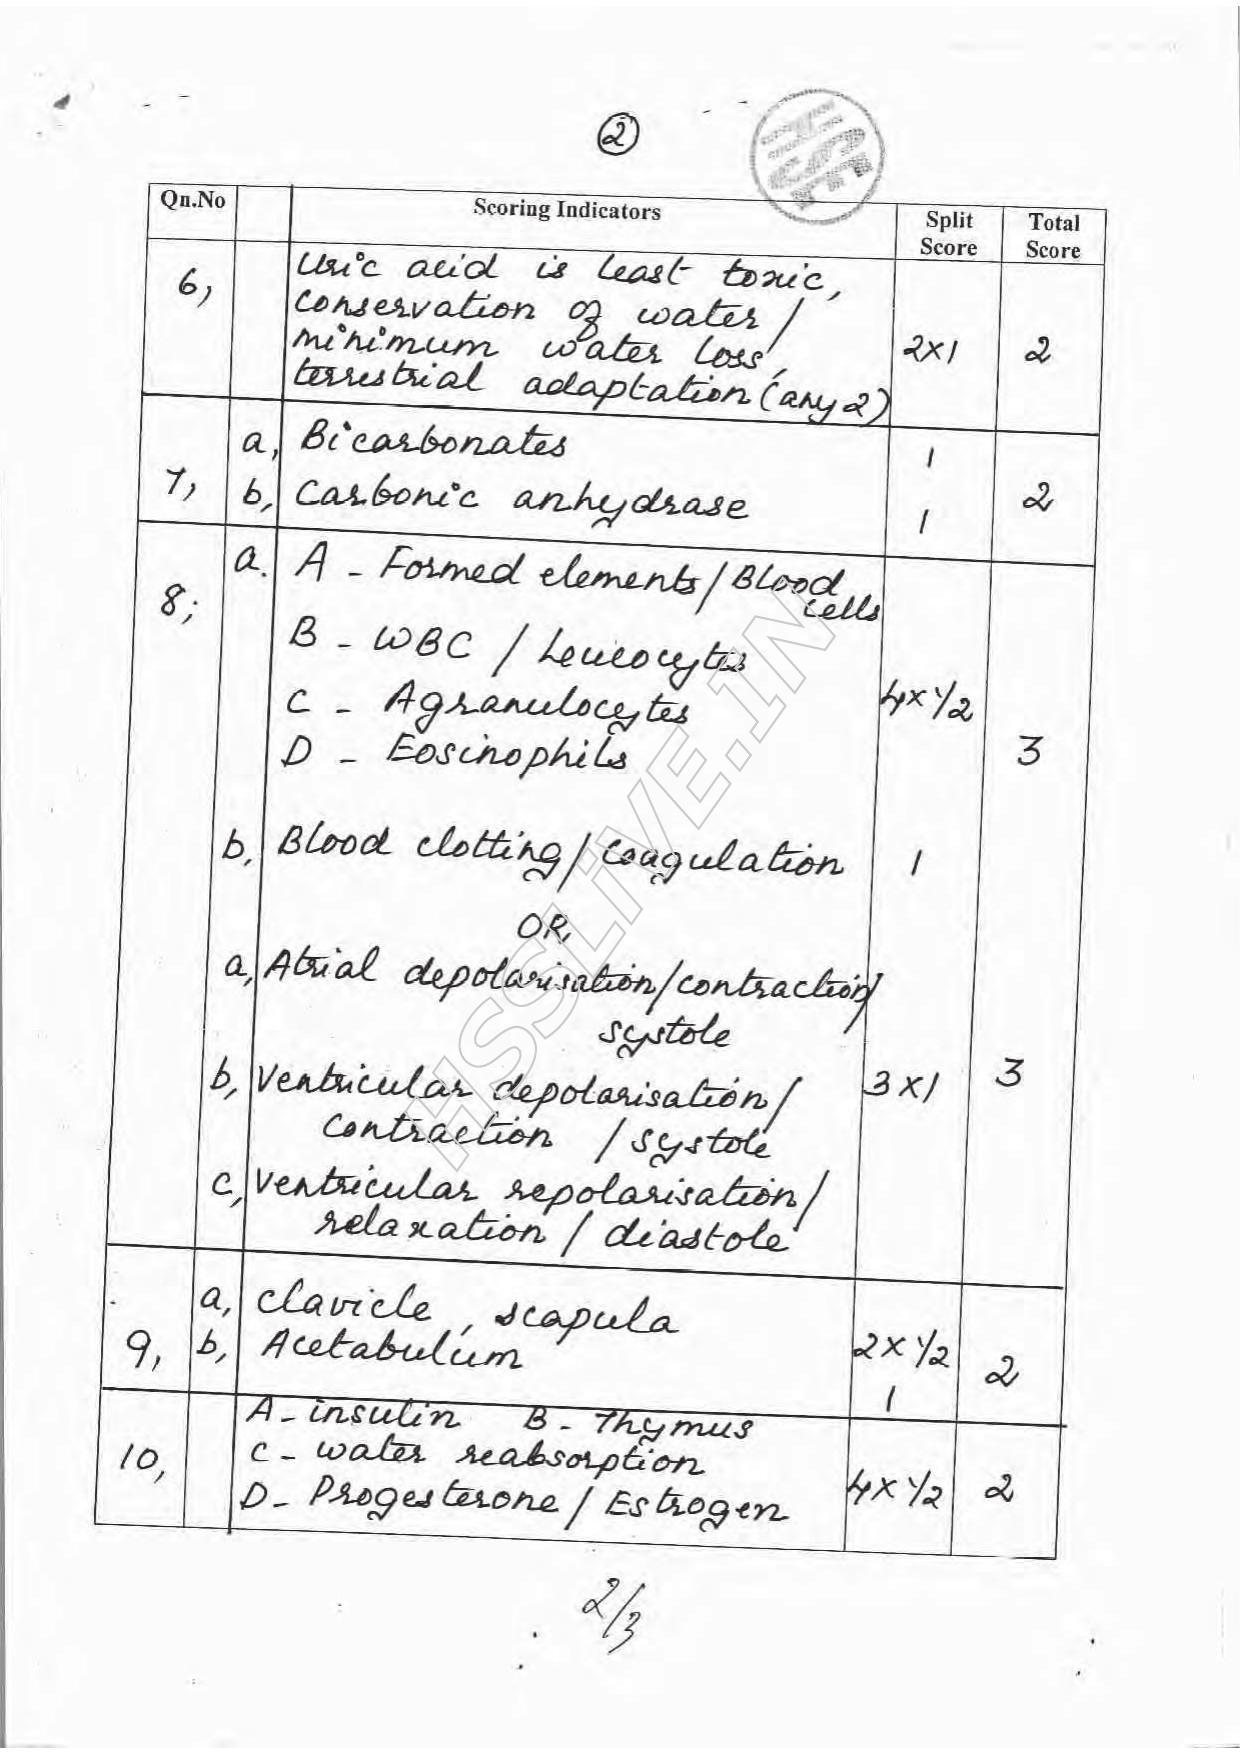 2
HSE
Qn.No Scoring Indicators Split Score Total Score
6, Uric acid is least toxic,
conservation of water /
minimum water loss,
terrestrial adaptation (any 2) 2x1 2
7, a, Bicarbonates 1
b, Carbonic anhydrase 1 2
8; a. A - Formed elements / Blood cells
B - WBC / Leucocytes
C - Agranulocytes 4x 1/2
D - Eosinophils 3
b, Blood clotting / coagulation 1
OR,
a, Atrial depolarisation / contraction /
systole
b, Ventricular depolarisation / 3x1 3
contraction / systole
c, Ventricular repolarisation /
relaxation / diastole
9, a, clavicle, scapula 2x 1/2
b, Acetabulum 1 2
10, A - insulin B - Thymus
C - water reabsorption
D - Progesterone / Estrogen 4x 1/2 2
2/3
HSSLiVE.IN